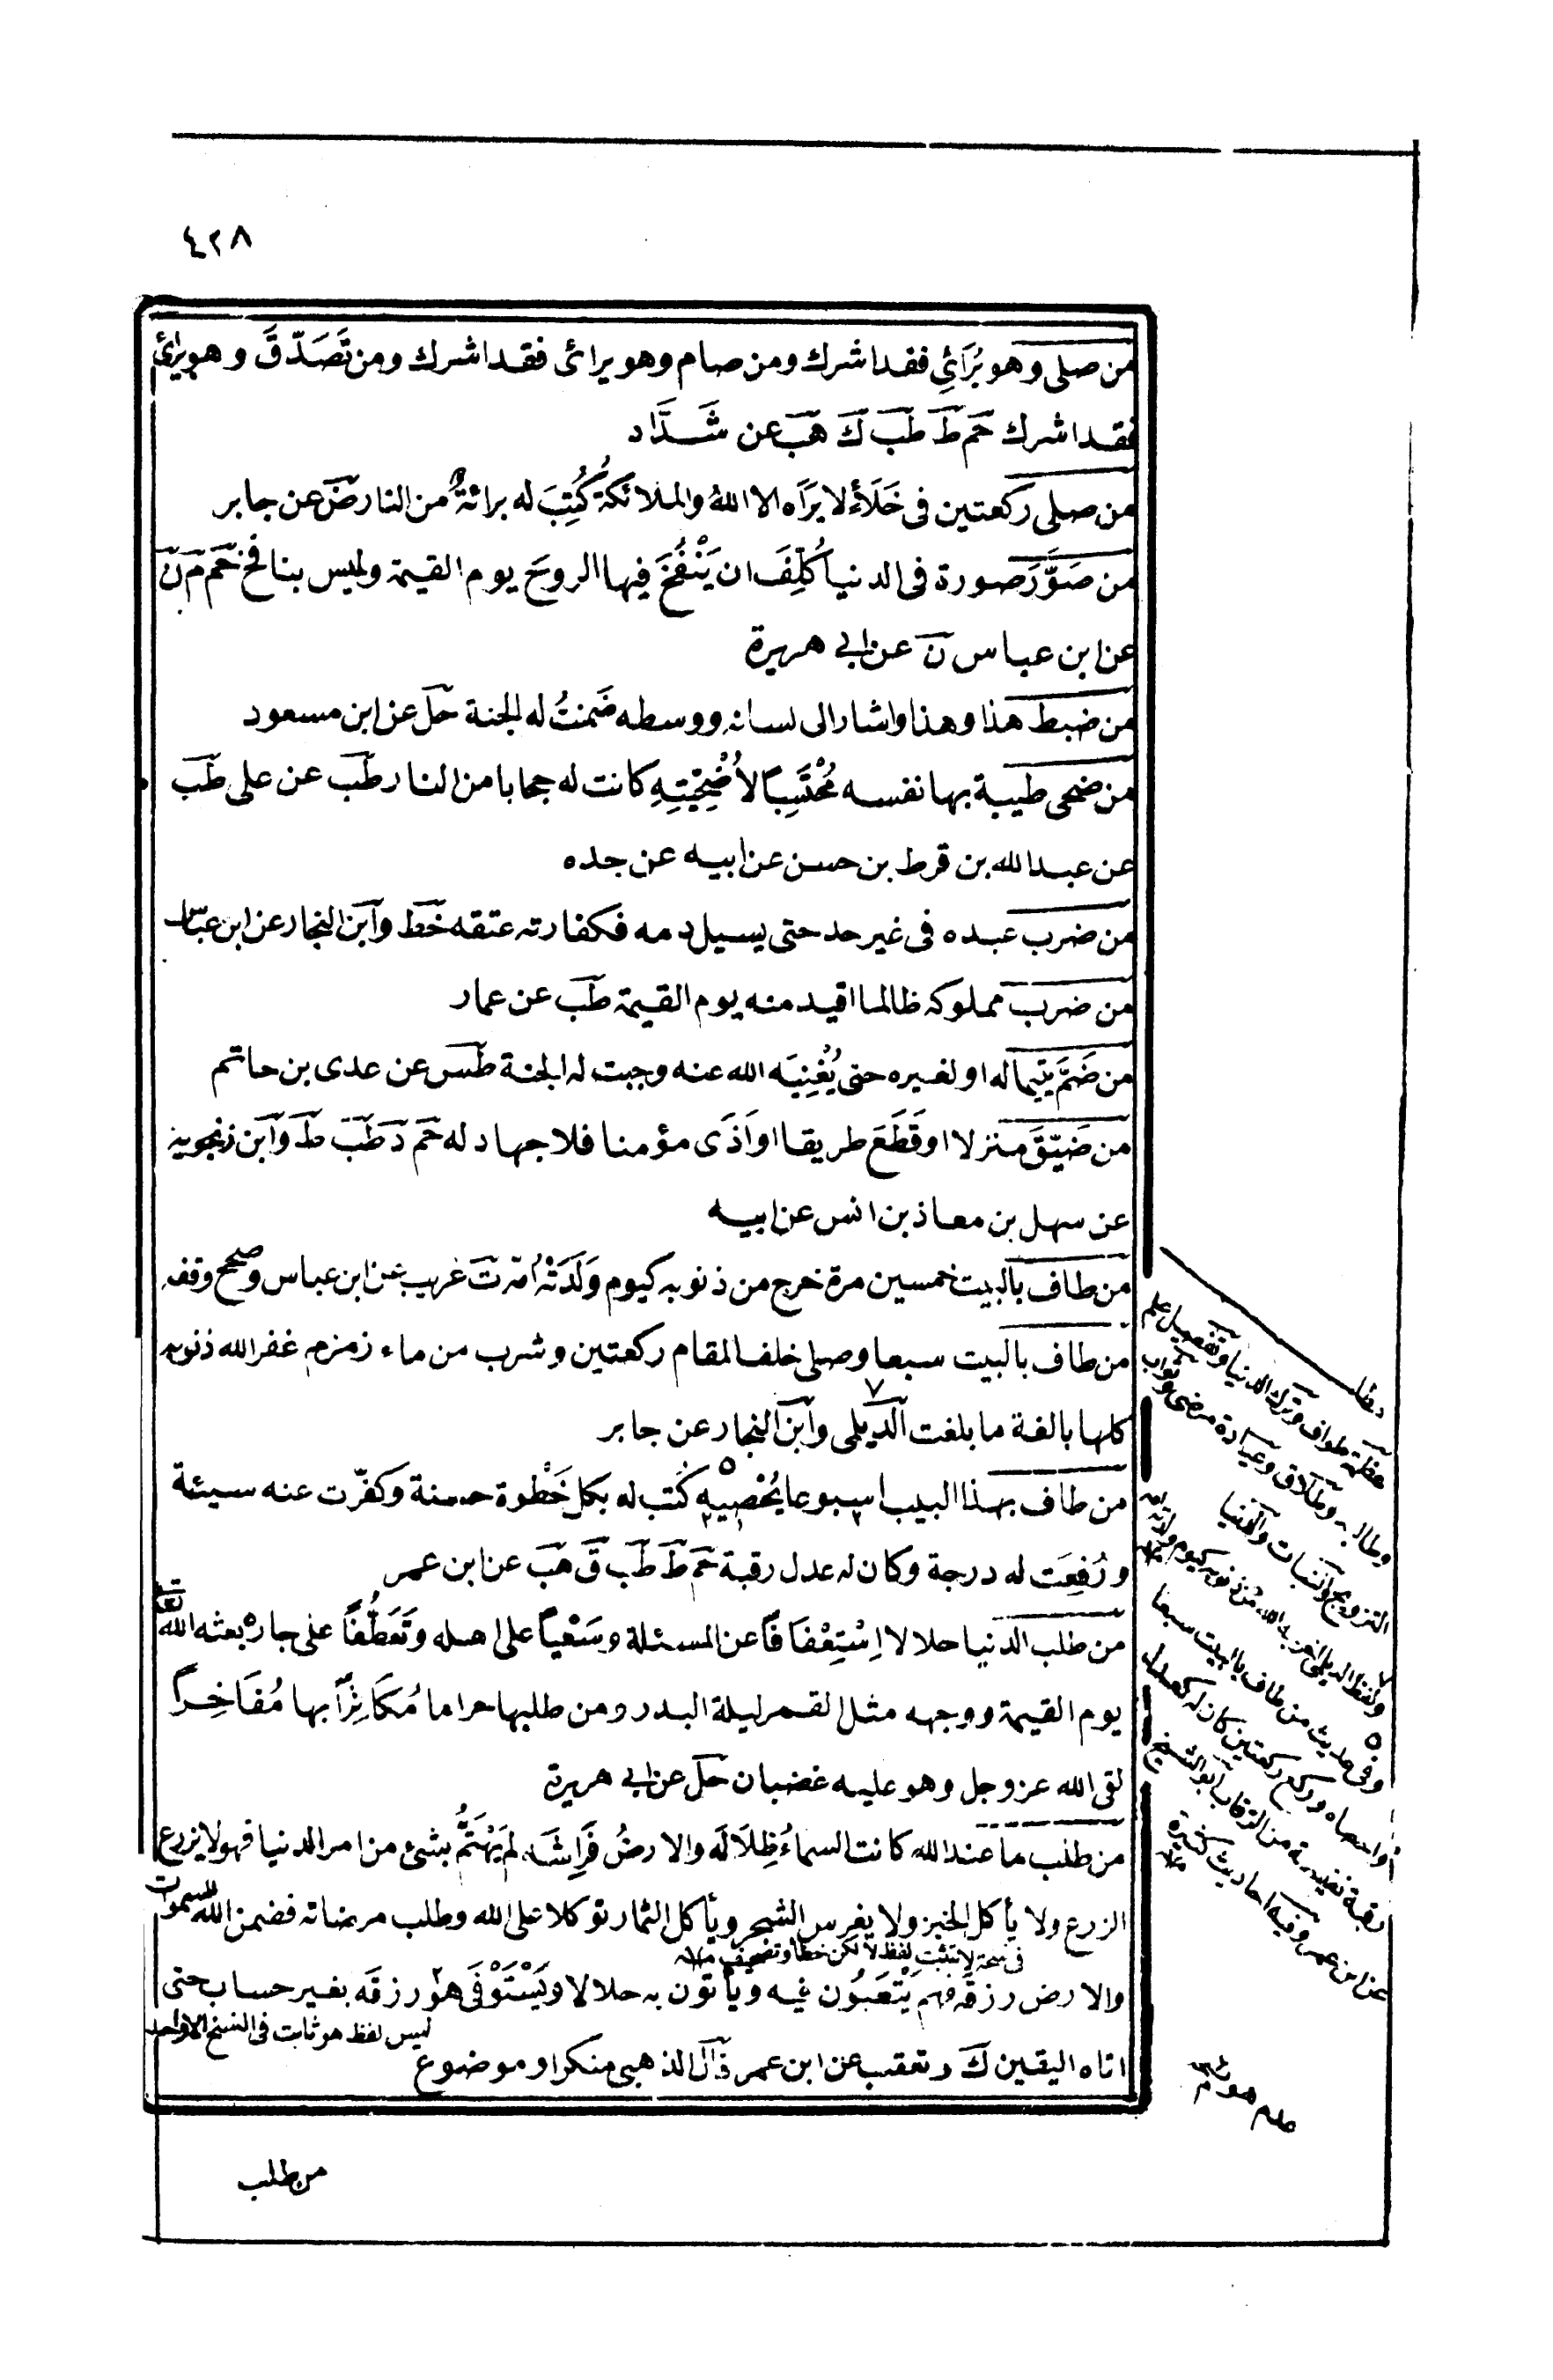 ٤٢٨
من صلى وهو يُرَائِي فقد اشرك ومن صام وهو يرائى فقد اشرك ومن تَصَدَّقَ وهو يرائى
فقد اشرك حم ط طب ك هب عن شَدَّاد
من صلى ركعتين فى خَلَاءٍ لا يَرَاه الا اللهُ والملائكةُ كُتِبَ له برائةٌ من النار ض عن جابر
من صَوَّرَ صورة فى الدنيا كُلِّفَ ان يَنْفُخَ فيها الروحَ يوم القيمة وليس بنافخ حم خ م ن
عن ابن عباس ن عن ابى هريرة
من ضبط هذا وهذا واشار الى لسانه ووسطه ضَمِنتُ له الجنة حل عن ابن مسعود
من ضحى طيبة بها نفسه مُحْتَسِبًا لأُضْحِيَّتِهِ كانت له حجابا من النار طب عن على طب
عن عبد الله بن قرط بن حسن عن ابيه عن جده
من ضرب عبده فى غير حد حتى يسيل دمه فكفارته عتقه خط وابن النجار عن ابن عباس
من ضرب مملوكه ظالما اقيد منه يوم القيمة طب عن عمار
من ضَمَّ يتيما له او لغيره حتى يُغْنِيَه الله عنه وجبت له الجنة طس عن عدى بن حاتم
من ضَيَّقَ منزلا او قَطَعَ طريقا او اَذَى مؤمنا فلا جهاد له حم د طب ط وابن زنجويه
عن سهل بن معاذ بن انس عن ابيه
من طاف بالبيت خمسين مرة خرج من ذنوبه كيوم وَلَدَتْهُ امه ت غريب عن ابن عباس وصحح وقفه
من طاف بالبيت سبعا وصلى خلف المقام ركعتين وشرب من ماء زمزم غفر الله ذنوبه
كلها بالغة ما بلغت الديلمى وابن النجار عن جابر
من طاف بهذا البيت اسبوعا يُحْصِيهِ كُتب له بكل خَطْوة حسنة وكفّرت عنه سيئة
ورُفِعَت له درجة وكان له عدل رقبة حم ط طب ق هب عن ابن عمر
من طلب الدنيا حلالا اِسْتِعْفَافًا عن المسئلة وسَعْيًا على اهله وتَعَطُّفًا على جاره بعثه الله
يوم القيمة ووجهه مثل القمر ليلة البدر ومن طلبها حراما مُكَاثِرًا بها مُفَاخِرًا
لقى الله عز وجل وهو عليه غضبان حل عن ابى هريرة
من طلب ما عند الله كانت السماءُ ظِلَالَه والارضُ فَرَاشَه لم يَهْتَمُّ بشئ من امر الدنيا فهو لا يزرع
الزرع ولا يأكل الخبز ولا يغرس الشجر ويأكل الثمار توكلا على الله وطلب مرضاته فضمن الله السموات
فى نسخة لا تثبت لفظ لا لكن خطا وتصحيف
والارض رزقه فهم يَتْعَبُون فيه ويأتون به حلالا ويَسْتَوْفَى هو رزقه بغير حساب حتى
ليس لفظ هو ثابت فى النسخ الا واحد
اتاه اليقين ك وتعقب عن ابن عمر قال الذهبى منكر او موضوع
مطلب
عظمة طواف وترك الدنيا وتفصيل علم
وطالبه وطلاق وعيادة مرضى وثواب
التزويج
ولفظ الديلمى من ذنوبه كيوم ولدته امه
وفى حديث من طاف بالبيت سبعا
واحصاه وركع ركعتين كان له كعدل
رقبة نفيسة من الرقاب ابو الشيخ
عن ابن عمر وفيه احاديث كثيرة
من طلب